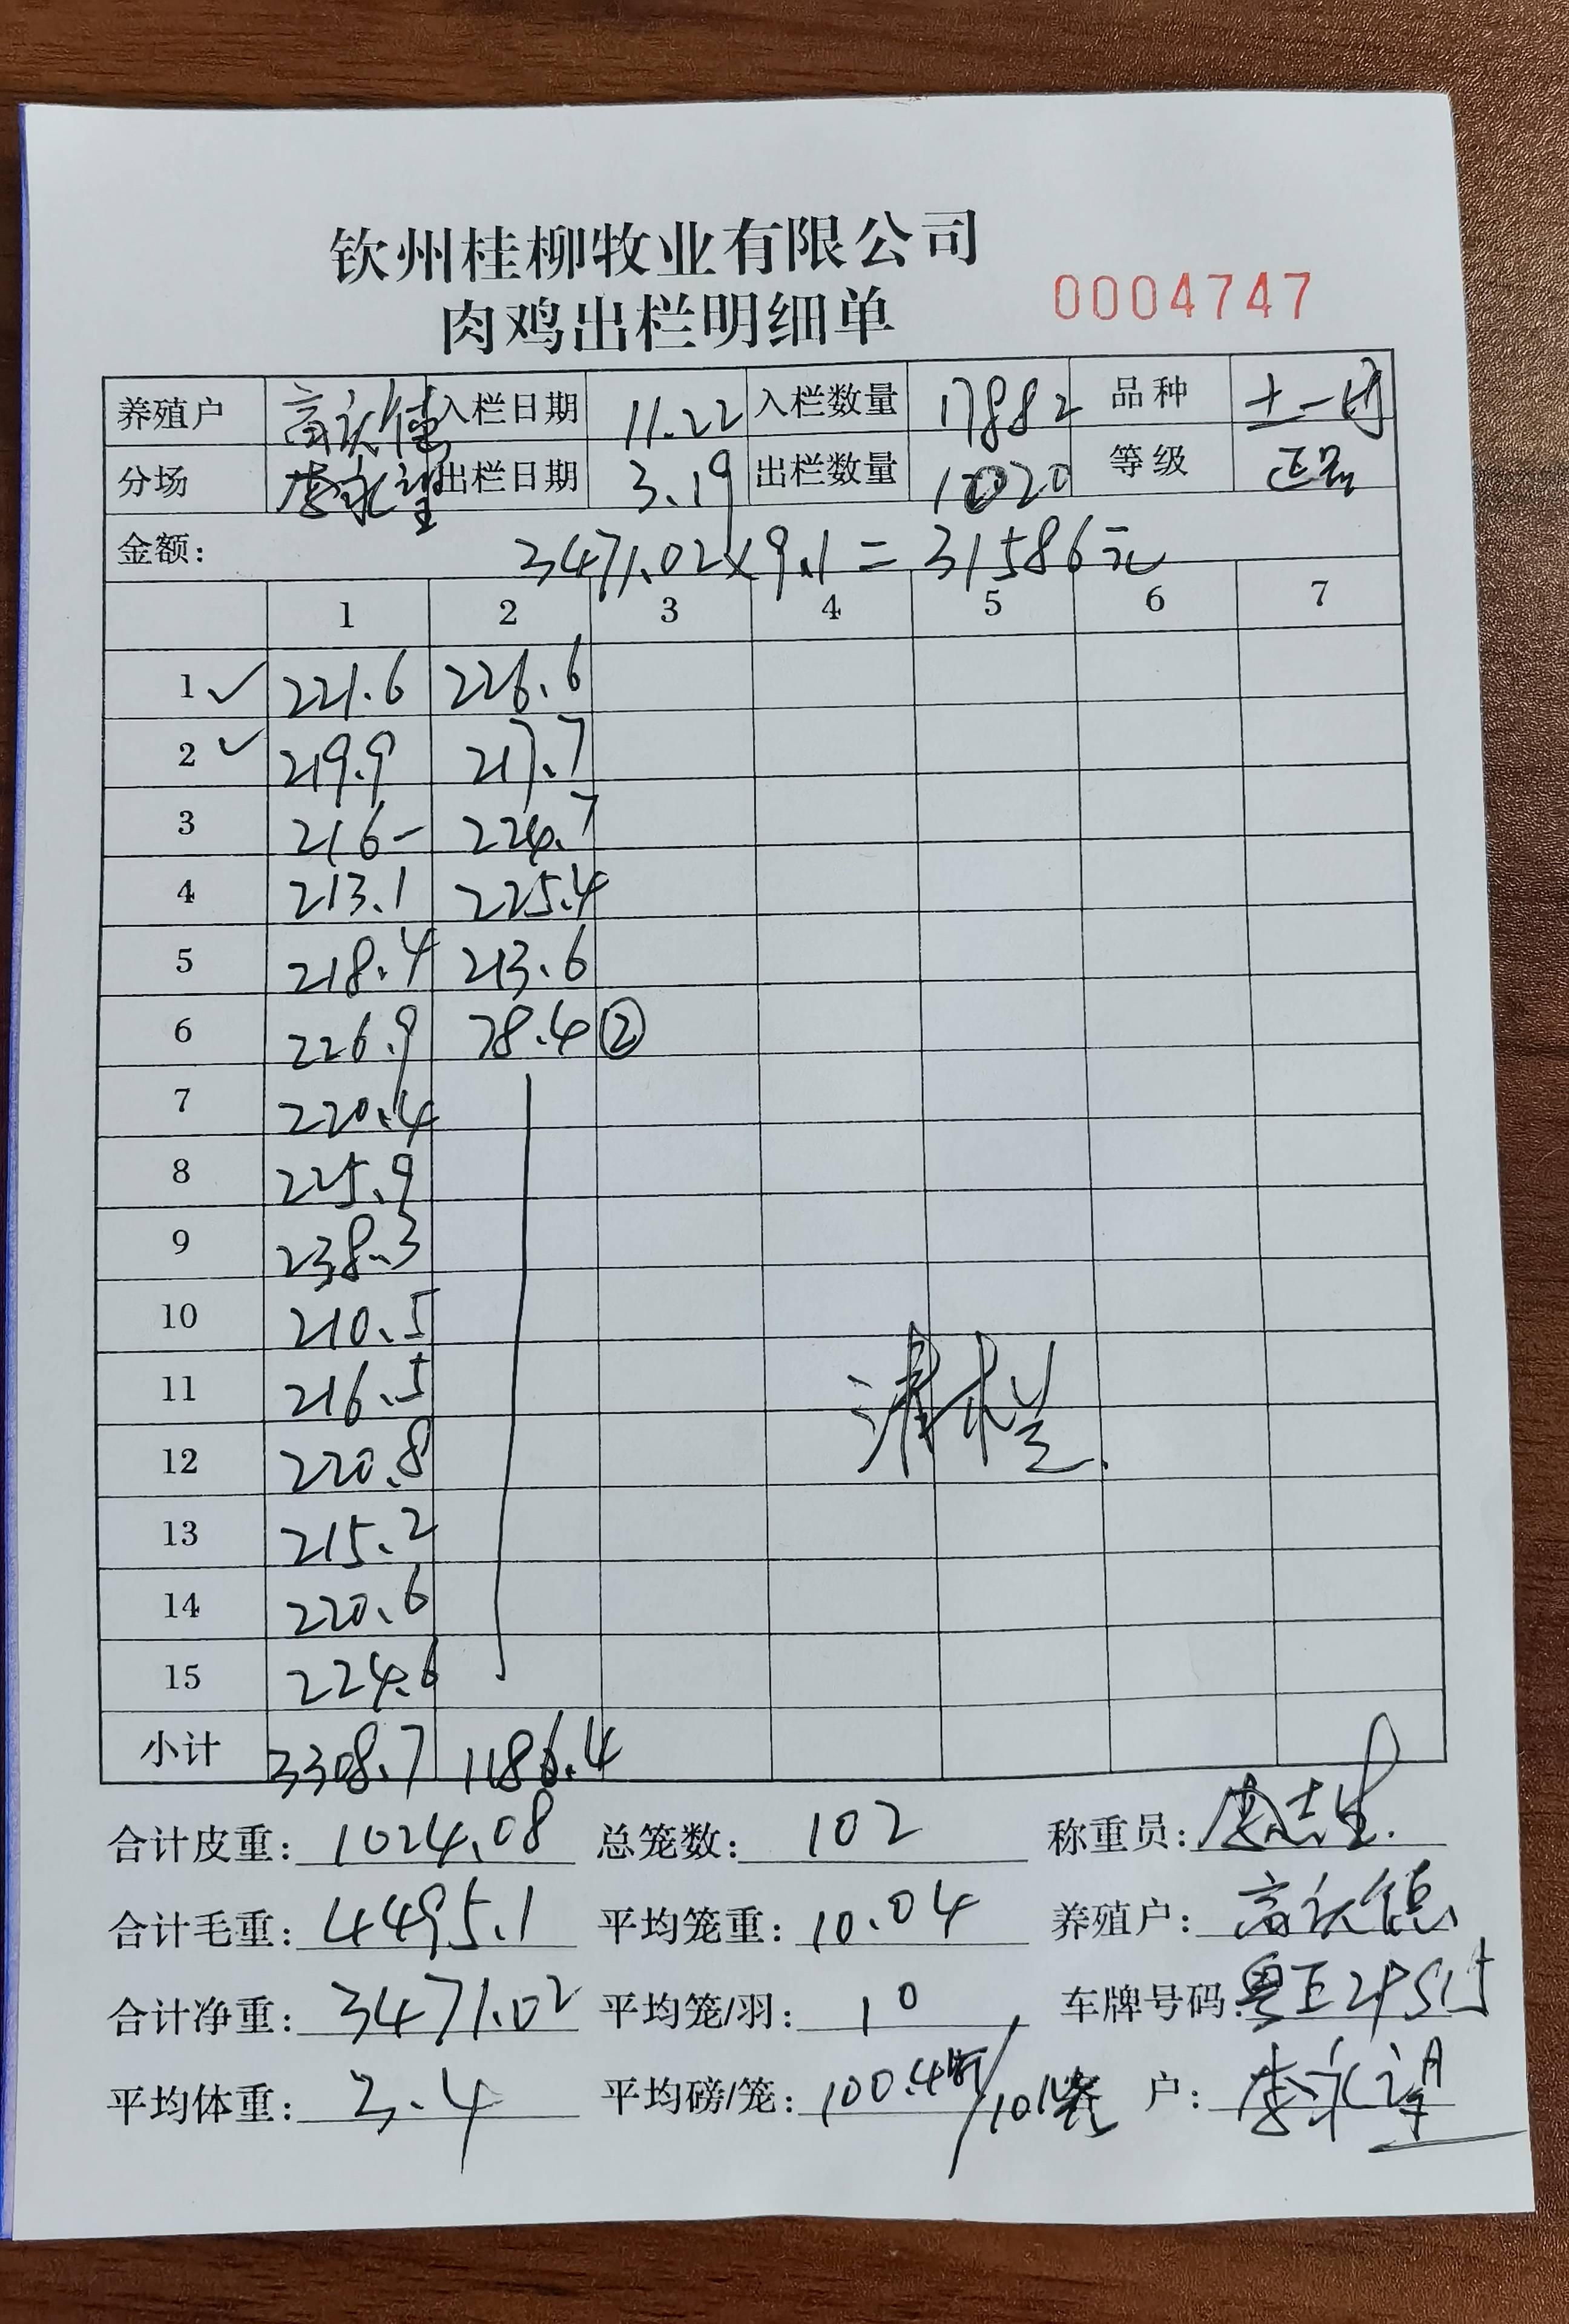 钦州桂柳牧业有限公司
肉鸡出栏明细单 0004747
养殖户 高庆德 入栏日期 11.22 入栏数量 17882 品种 土一
分场 李永望 出栏日期 3.19 出栏数量 1020 等级 正品
金额: 3471.02×9.1=31586元
1 2 3 4 5 6 7
1 ✓ 221.6 226.6
2 ✓ 219.9 217.7
3 216- 224.7
4 213.1 225.4
5 218.4 213.6
6 226.9 78.4 ②
7 220.4
8 225.9
9 238.3
10 210.5
11 216.5
清栏
12 220.8
13 215.2
14 220.6
15 224.6
小计 3308.7 1186.4
合计皮重: 1024.08 总笼数: 102 称重员:
合计毛重: 4495.1 平均笼重: 10.04 养殖户: 高庆德
合计净重: 3471.02 平均笼/羽: 10 车牌号码:
平均体重: 3.4 平均磅/笼: 100.4斤/10 户: 李永望